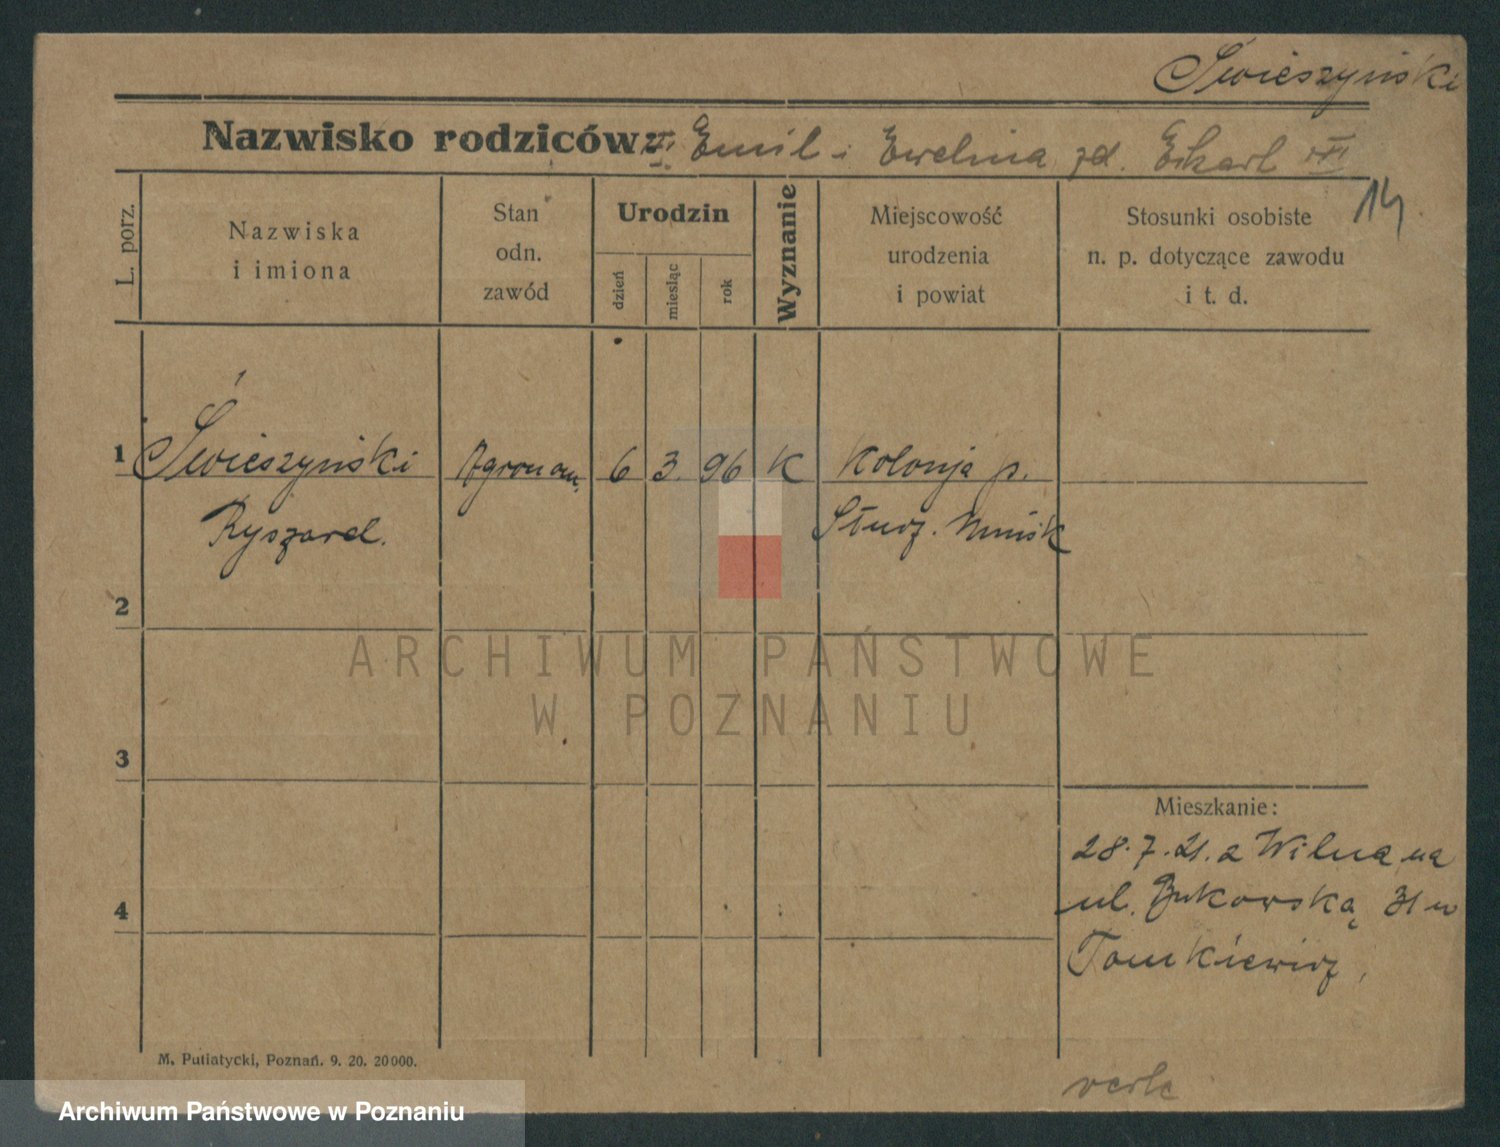 Świeszyński
Nazwisko rodziców: Emil i Ewelina zd. Ekarl
14
L. porz.
Nazwiska
i imiona
Stan
odn.
zawód
Urodzin
dzień
miesiąc
rok
Wyznanie
Miejscowość
urodzenia
i powiat
Stosunki osobiste
n. p. dotyczące zawodu
i t. d.
1 Świeszyński Agronom. 6 3. 96 K Kolonja p.
Ryszard. Słudz. Mińsk
2
ARCHIWUM PAŃSTWOWE
W POZNANIU
3
Mieszkanie:
28.7.21. z Wilna na
ul. Bukowską 31 u
4
Tomkiewicz,
M. Putiatycki, Poznań. 9. 20. 20000.
verte
Archiwum Państwowe w Poznaniu